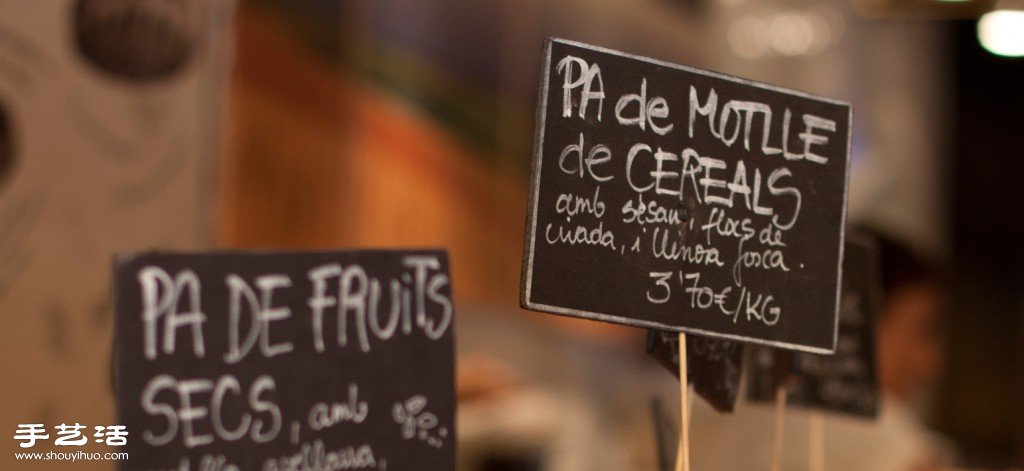 PA de MOTLLE
de CEREALS
amb sèsam i flocs de
civada, i llinosa fosca.
3'70€/KG
PA DE FRUITS
SECS, amb
avellana,
手艺活
www.shouyihuo.com